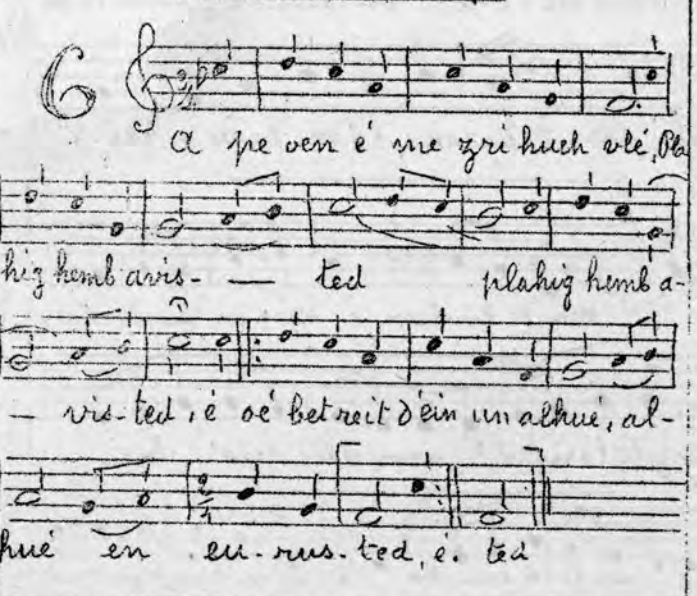 6
A pe oen é me zri huéh vlé, Pla
hig hemb avis- — ted plahig hemb a-
— vis-ted, é oé bet reit d'ein un alhué, al-
hué en eu-rus-ted, é. ted